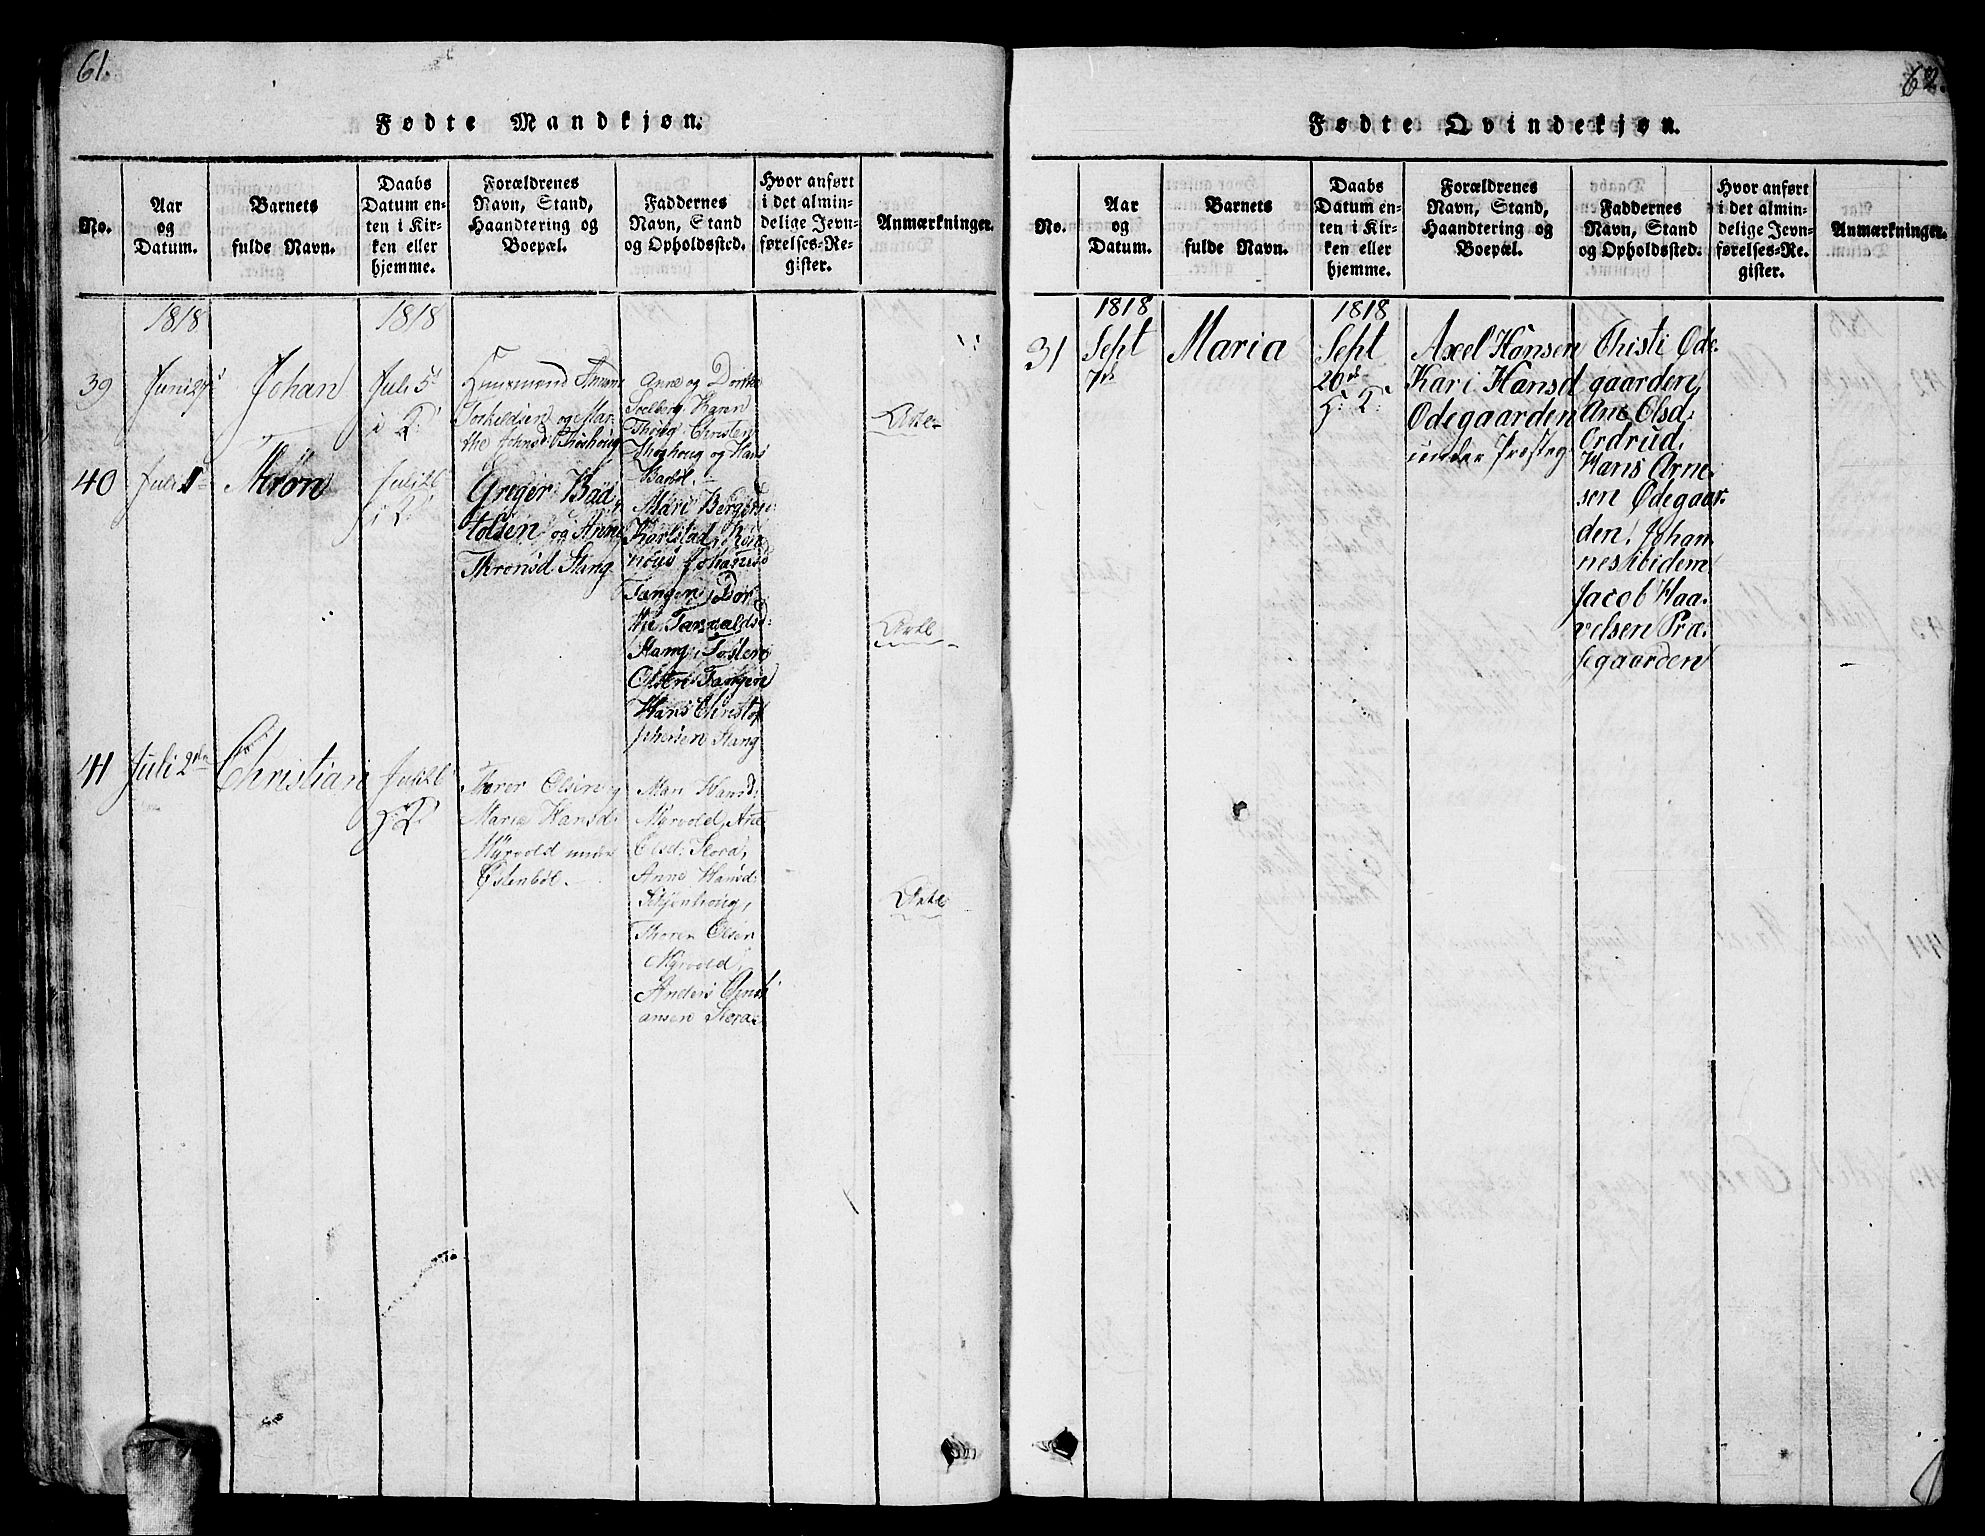 61.
Fødte Mandkjøn.
No.
Aar
og
Datum.
Barnets
fulde Navn.
Daabs
Datum en-
ten i Kir-
ken eller
hjemme.
Forældrenes
Navn, Stand,
Haandtering og
Boepæl.
Faddernes
Navn, Stand
og Opholdssted.
Hvor anført
i det almin-
delige Jevn-
førelses-Re-
gister.
Anmærkninger.
1818
1818
39
Juni 27
Johan
Juli 5
i K:
Huusmand
og Mar-
the Johnsd:
Anne og Dorthe
Solberg, Karen
Christen
og Hans
40
Juli 1
Thron
Juli 26
i K:
Greger Bad
tolsen og Anne
Thronsd Stang
Mari Bergers:
Karlstad,
Johannsd
Tangen, Dor
the Tarvaldsd:
Stang, Tosten
Olsen Tangen
Hans Christof
fersen Stang
41
Juli 2den
Christian
Juli 26
H: K:
Thorer Olsen og
Maria Hansd:
Myrvold under
Østenbøl.
Mari Hansd:
Myrvold, Ane
Olsd: Slora,
Anne Hansd:
Thoren Olsen
Myrvold,
Anders Christi
ansen Slora
62.
Fødte Qvindekjøn.
No.
Aar
og
Datum.
Barnets
fulde Navn.
Daabs
Datum en-
ten i Kir-
ken eller
hjemme.
Forældrenes
Navn, Stand,
Haandtering og
Boepæl.
Faddernes
Navn, Stand
og Opholdssted.
Hvor anført
i det almin-
delige Jevn-
førelses-Re-
gister.
Anmærkninger.
1818
1818
31
Sept
7de
Maria
Sept
20de
H: K:
Axel Hansen
Kari Hansd
Ødegaarden
under Presteg
Christi Øde-
gaarden,
Ane Olsd:
Ordrud,
Hans Arne-
sen Ødegaar-
den, Johan-
nes ibidem
Jacob Haa-
velsen Præ-
stegaarden